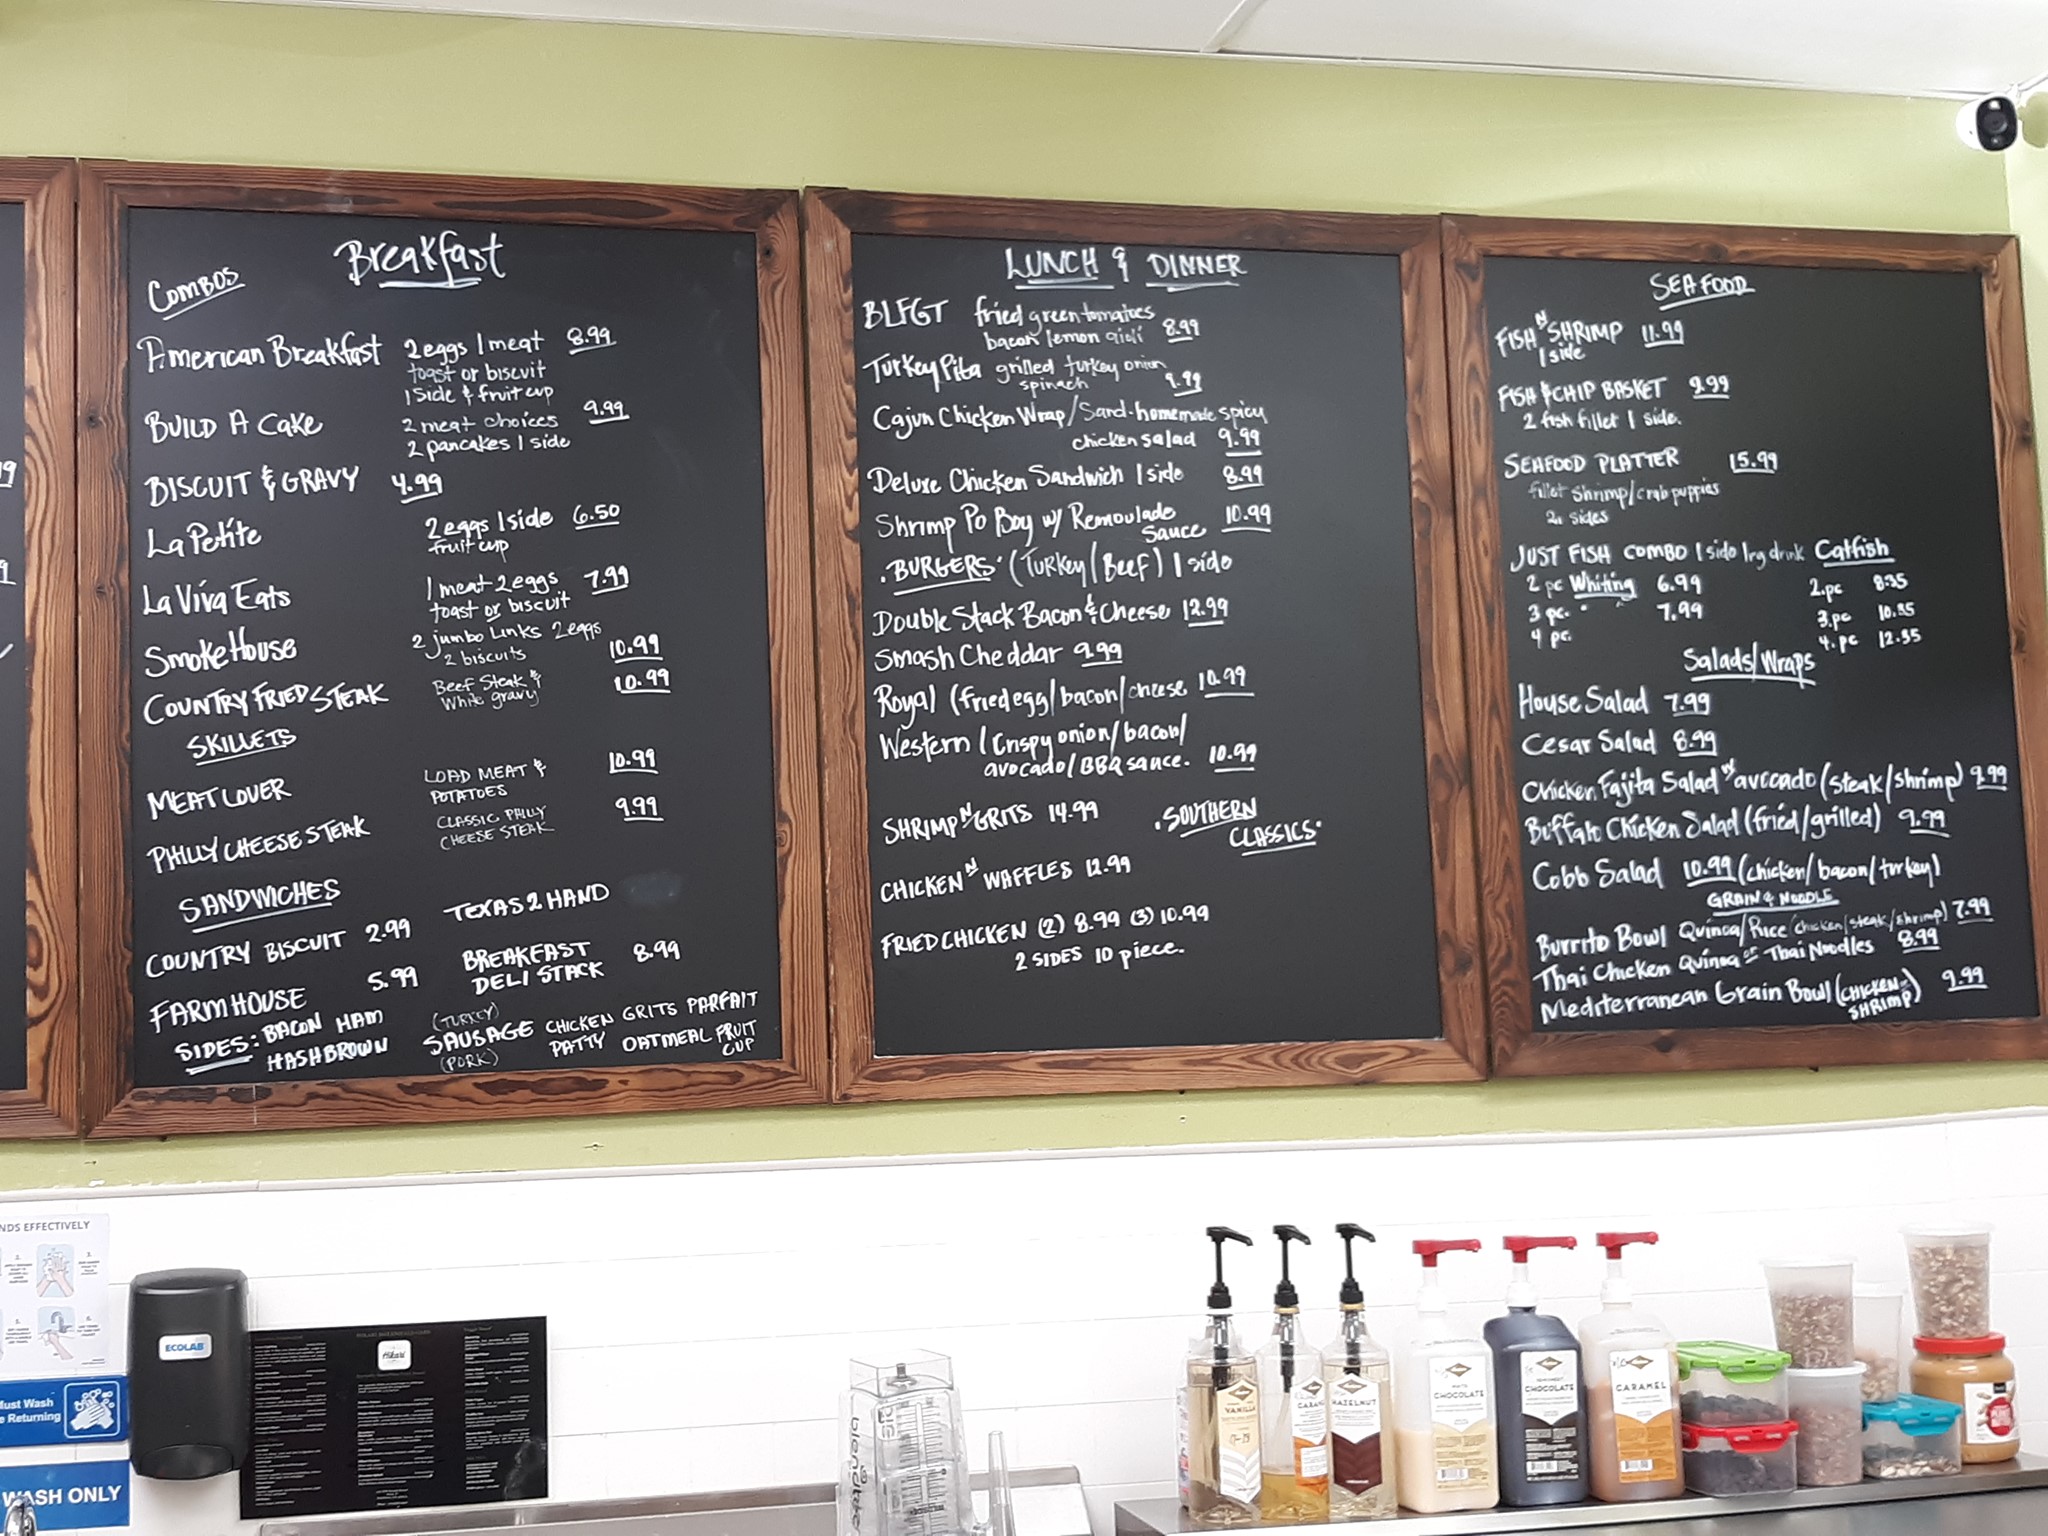 Breakfast
COMBOS
American Breakfast 2 eggs 1 meat 8.99
toast or biscuit
1 side & fruit cup
BUILD A Cake 2 meat choices 9.99
2 pancakes 1 side
BISCUIT & GRAVY 4.99
La Petite 2 eggs 1 side 6.50
fruit cup
La Viva Eats 1 meat 2 eggs 7.99
toast or biscuit
Smoke House 2 jumbo Links 2 eggs
2 biscuits 10.99
COUNTRY FRIED STEAK Beef Steak & 10.99
White gravy
SKILLETS
MEAT LOVER LOAD MEAT & 10.99
POTATOES
PHILLY CHEESE STEAK CLASSIC PHILLY 9.99
CHEESE STEAK
SANDWICHES
TEXAS 2 HAND
COUNTRY BISCUIT 2.99
BREAKFAST
DELI STACK 8.99
FARM HOUSE 5.99
SIDES: BACON HAM (TURKEY) CHICKEN GRITS PARFAIT
HASHBROWN SAUSAGE PATTY OATMEAL FRUIT
(PORK) CUP
LUNCH & DINNER
BLFGT fried green tomatoes
bacon lemon aioli 8.99
Turkey Pita grilled turkey onion
spinach 9.99
Cajun Chicken Wrap/Sand-homemade spicy
chicken salad 9.99
Deluxe Chicken Sandwich 1 side 8.99
Shrimp Po Boy w/ Remoulade
Sauce 10.99
.BURGERS. (Turkey/Beef) 1 side
Double Stack Bacon & Cheese 12.99
Smash Cheddar 9.99
Royal (fried egg/bacon/cheese 10.99
Western / Crispy onion/bacon/
avocado/BBQ sauce. 10.99
SHRIMP N GRITS 14.99
.SOUTHERN
CLASSICS.
CHICKEN N WAFFLES 12.99
FRIED CHICKEN (2) 8.99 (3) 10.99
2 SIDES 10 piece.
SEAFOOD
FISH N SHRIMP 11.99
1 side
FISH & CHIP BASKET 9.99
2 fish fillet 1 side.
SEAFOOD PLATTER 15.99
fillet shrimp/crab puppies
2 sides
JUST FISH COMBO 1 side 1 rg drink Catfish
2 pc Whiting 6.99 2.pc 8.35
3 pc. " " 7.99 3.pc 10.35
4 pc. 4.pc 12.35
Salads/Wraps
House Salad 7.99
Cesar Salad 8.99
Chicken Fajita Salad w/ avocado (steak/shrimp) 9.99
Buffalo Chicken Salad (fried/grilled) 9.99
Cobb Salad 10.99 (chicken/bacon/turkey)
GRAIN & NOODLE
Burrito Bowl Quinoa/Rice chicken/steak/shrimp) 7.99
Thai Chicken Quinoa or Thai Noodles 8.99
Mediterranean Grain Bowl (CHICKEN or
SHRIMP) 9.99
NDS EFFECTIVELY
ECOLAB
Must Wash
e Returning
WASH ONLY
Hikari
blendtec
VANILLA
CARAM
HAZELNUT
WHITE
CHOCOLATE
CHOCOLATE
CARAMEL